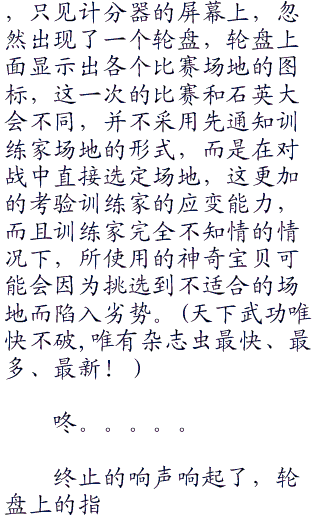 ，只见计分器的屏幕上，忽
然出现了一个轮盘，轮盘上
面显示出各个比赛场地的图
标，这一次的比赛和石英大
会不同，并不采用先通知训
练家场地的形式，而是在对
战中直接选定场地，这更加
的考验训练家的应变能力，
而且训练家完全不知情的情
况下，所使用的神奇宝贝可
能会因为挑选到不适合的场
地而陷入劣势。(天下武功唯
快不破,唯有杂志虫最快、最
多、最新！)
咚。。。。。
终止的响声响起了，轮
盘上的指